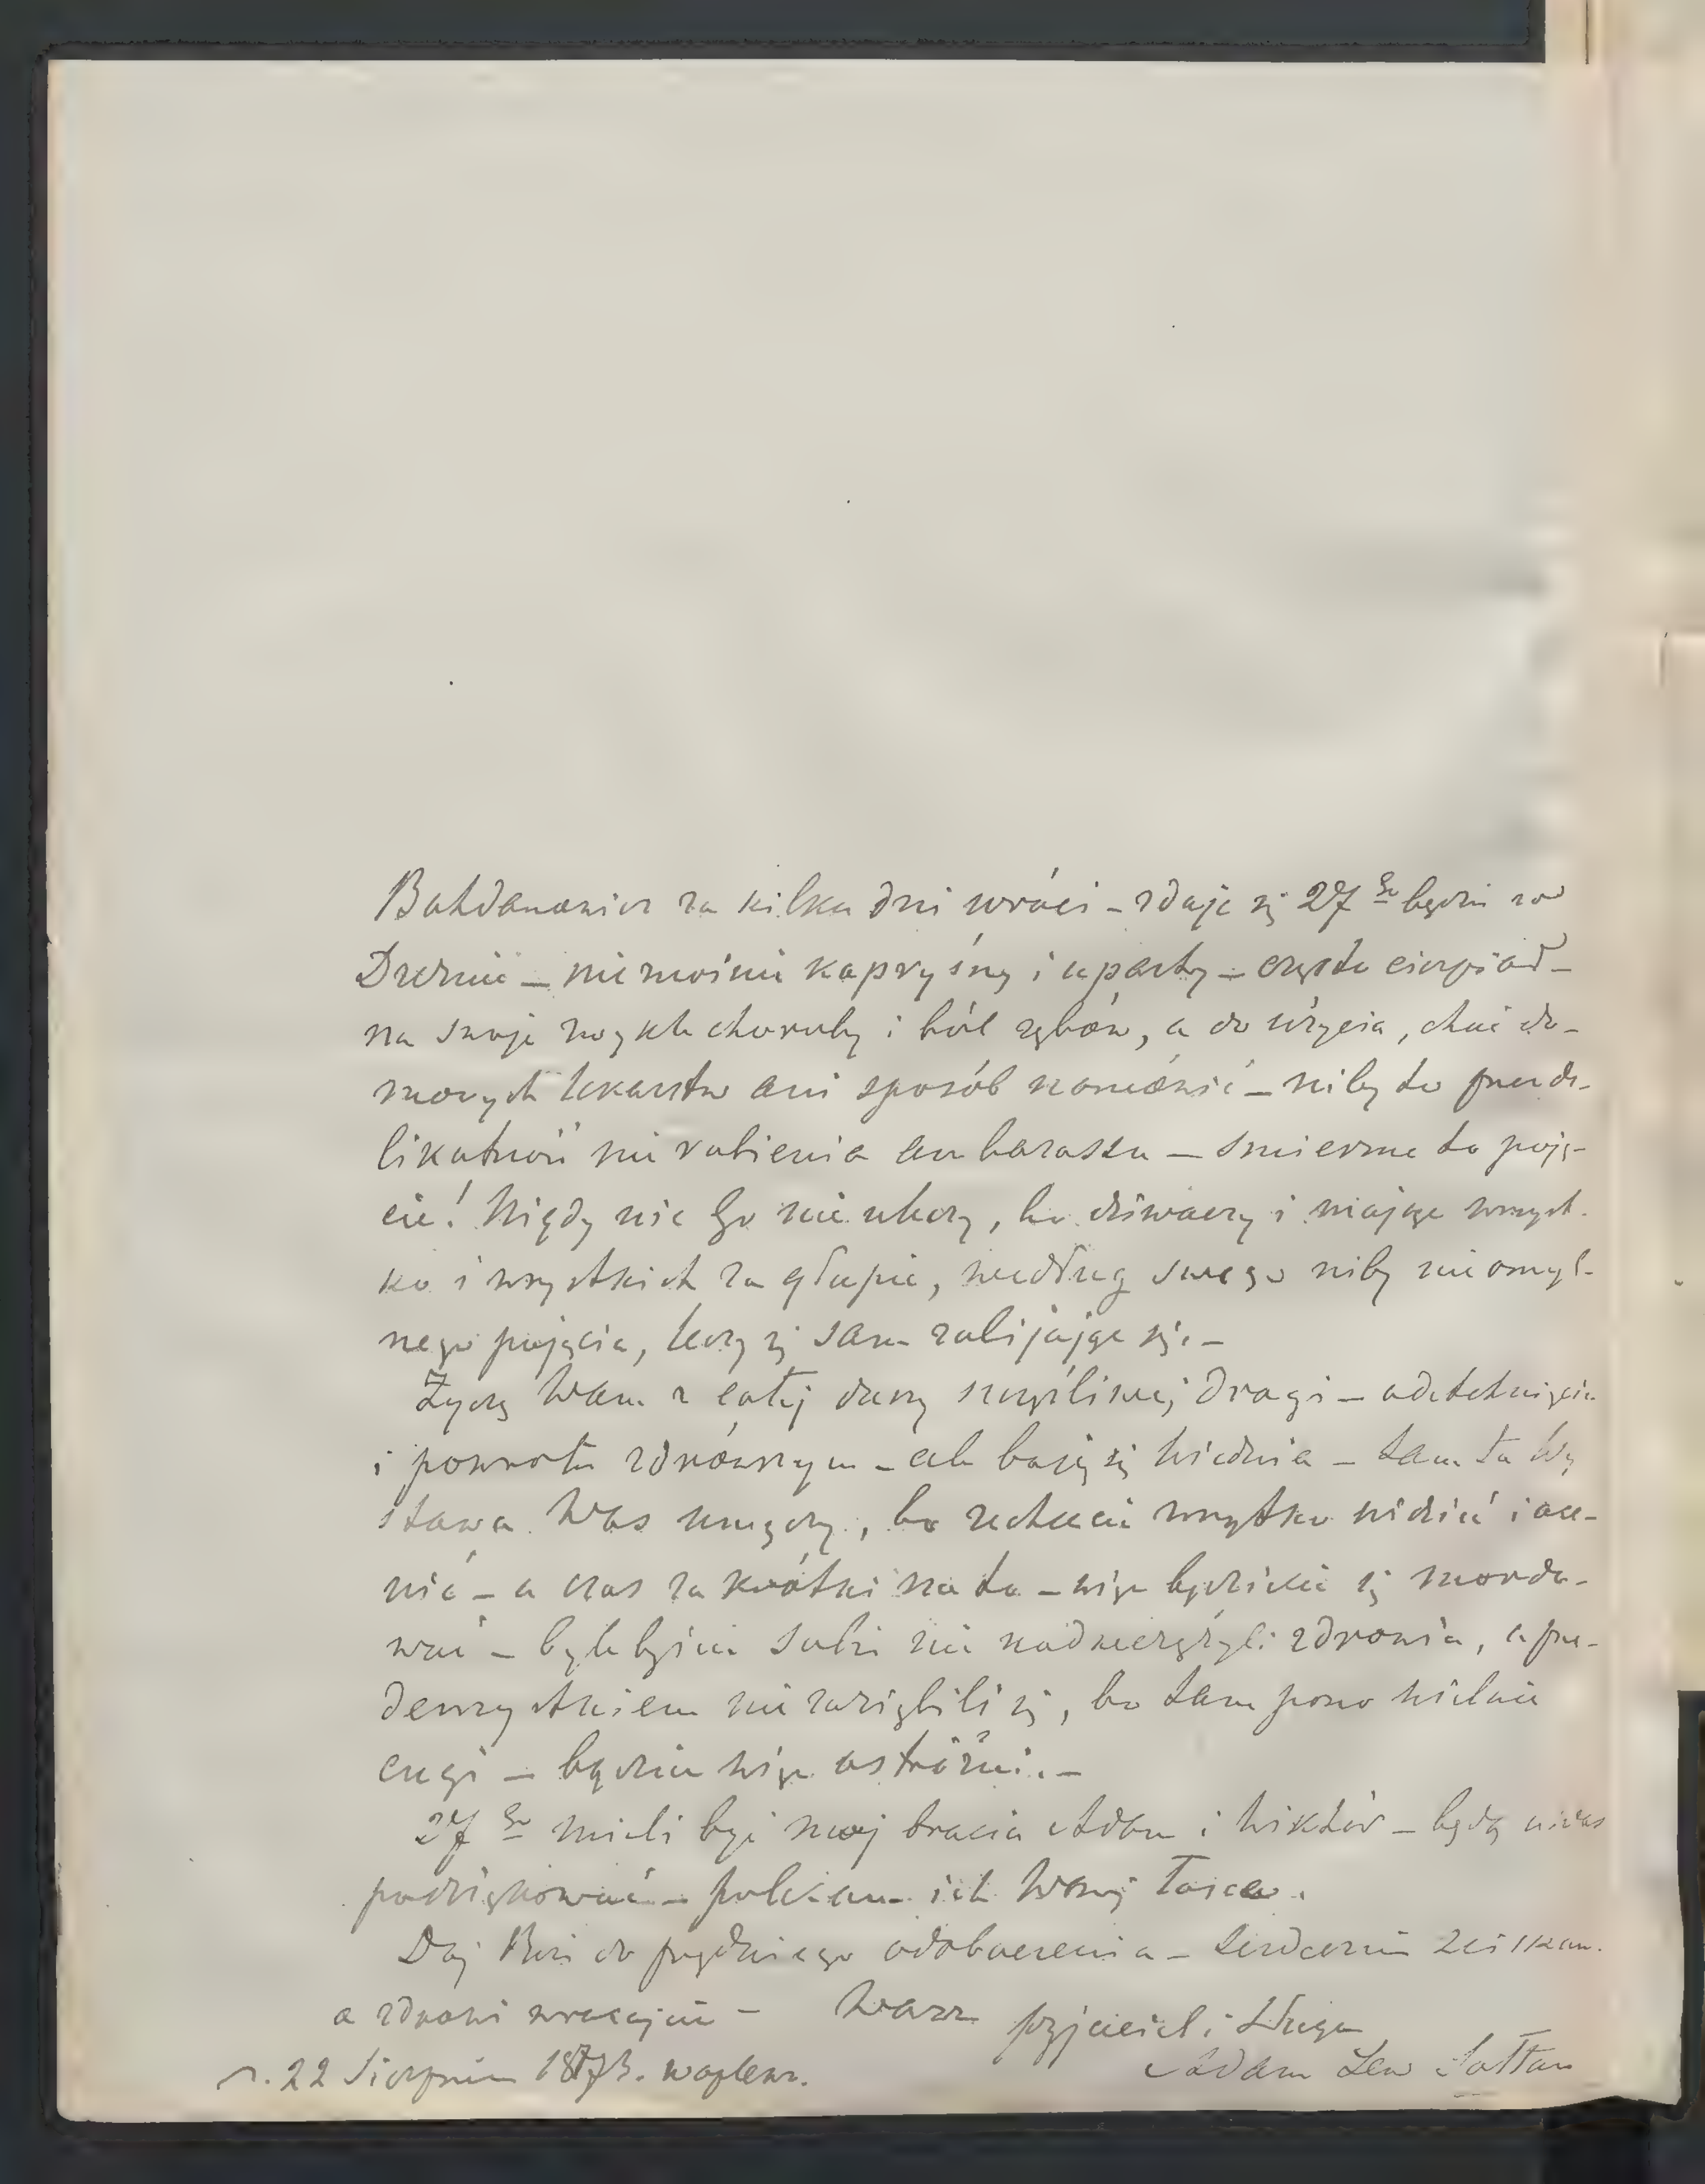 Bohdanowicz za kilka dni wróci – zdaje się 27 go będzie w
Dreznie – nieznośnie kapryśny i uparty – często cierpiał
na swoje zwykłe choroby i ból zębów, a do użycia, choć do-
mowych lekarstw ani sposób namówić – niby to przez de-
likatność nie robienia ambarassu – śmieszne to poję-
cie! Nigdy nic Go nie uleczy, bo dziwaczy i mając wszyst-
ko i wszystkich za głupie, według swego niby nieomyl-
nego pojęcia, leczy się sam zabijając się. –
Życzę Wam z całej duszy szczęśliwej drogi – odetchnięcia
i powrotu zdrowszym – ale boję się Wiednia – tam ta Wy
stawa Was zmęczy, bo zechcecie wszystko widzieć i oce-
nić – a czas za krótki na to – więc będziecie się mordo-
wać – byle byście sobie nie nadwerężyli zdrowia, a prze-
dewszystkiem nie zaziębili się, bo tam pono wielkie
cugi – bądźcie więc ostróżni. –
27 go mieli być moj bracia Adam i Wiktór – będą u was
podziękować – polecam ich Waszej łasce.
Daj Boże do prędkiego odobaczenia – serdecznie ściskam.
a zdrowi wracajcie – Wasz przyjaciel i sługa
Adam Lew Sołtan
d. 22 Sierpnia 1873. Waplewo.